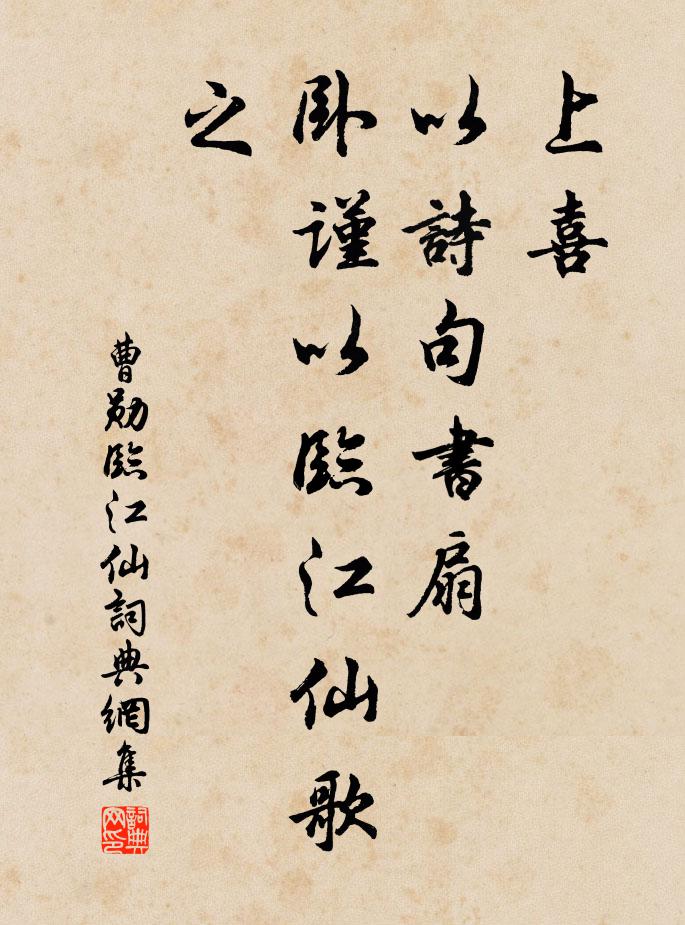 上喜
以詩句書扇
卧謹以臨江仙歌
之
曹勛臨江仙詞典網集
詞典网印